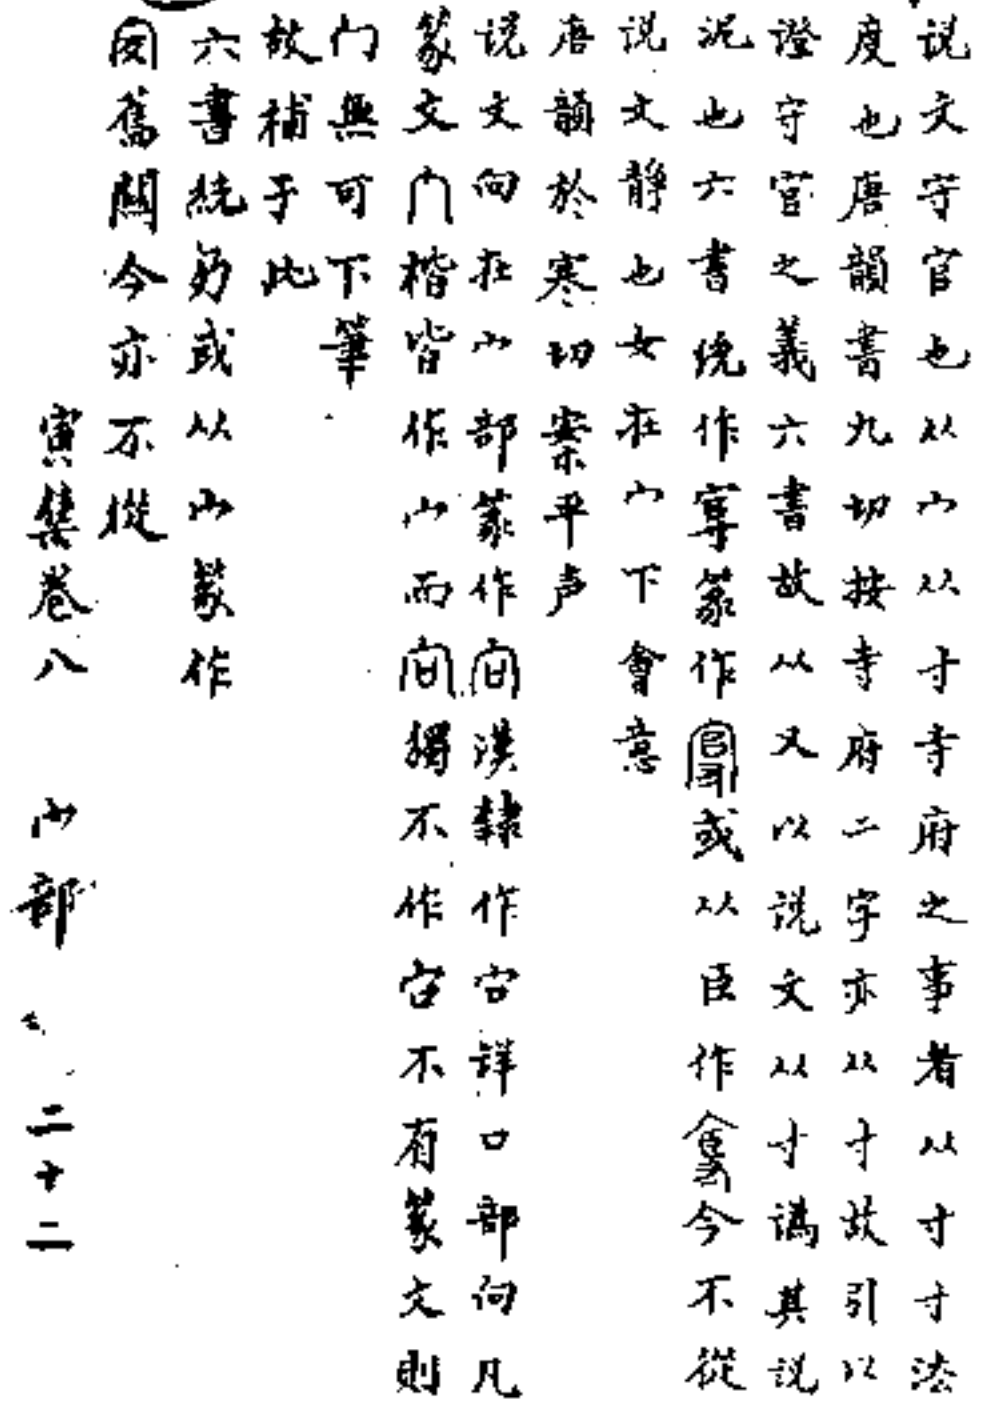 说文守官也从宀从寸寺府之事者从寸寸法
度也唐韻書九切按寺府二字亦从寸故引以
證守官之義六書故从又以说文从寸譌其说
泥也六書统作篆作或从臣作今不從
说文静也女在宀下會意
唐韻於寒切案平声
说文向在宀部篆作向漢隸作容詳口部向凡
篆文宀楷皆作宀而向獨不作不有篆文則
门無可下筆
故補于此
六書統另或从宀篆作
舊闕今亦不從
寅集卷八 宀部 二十二